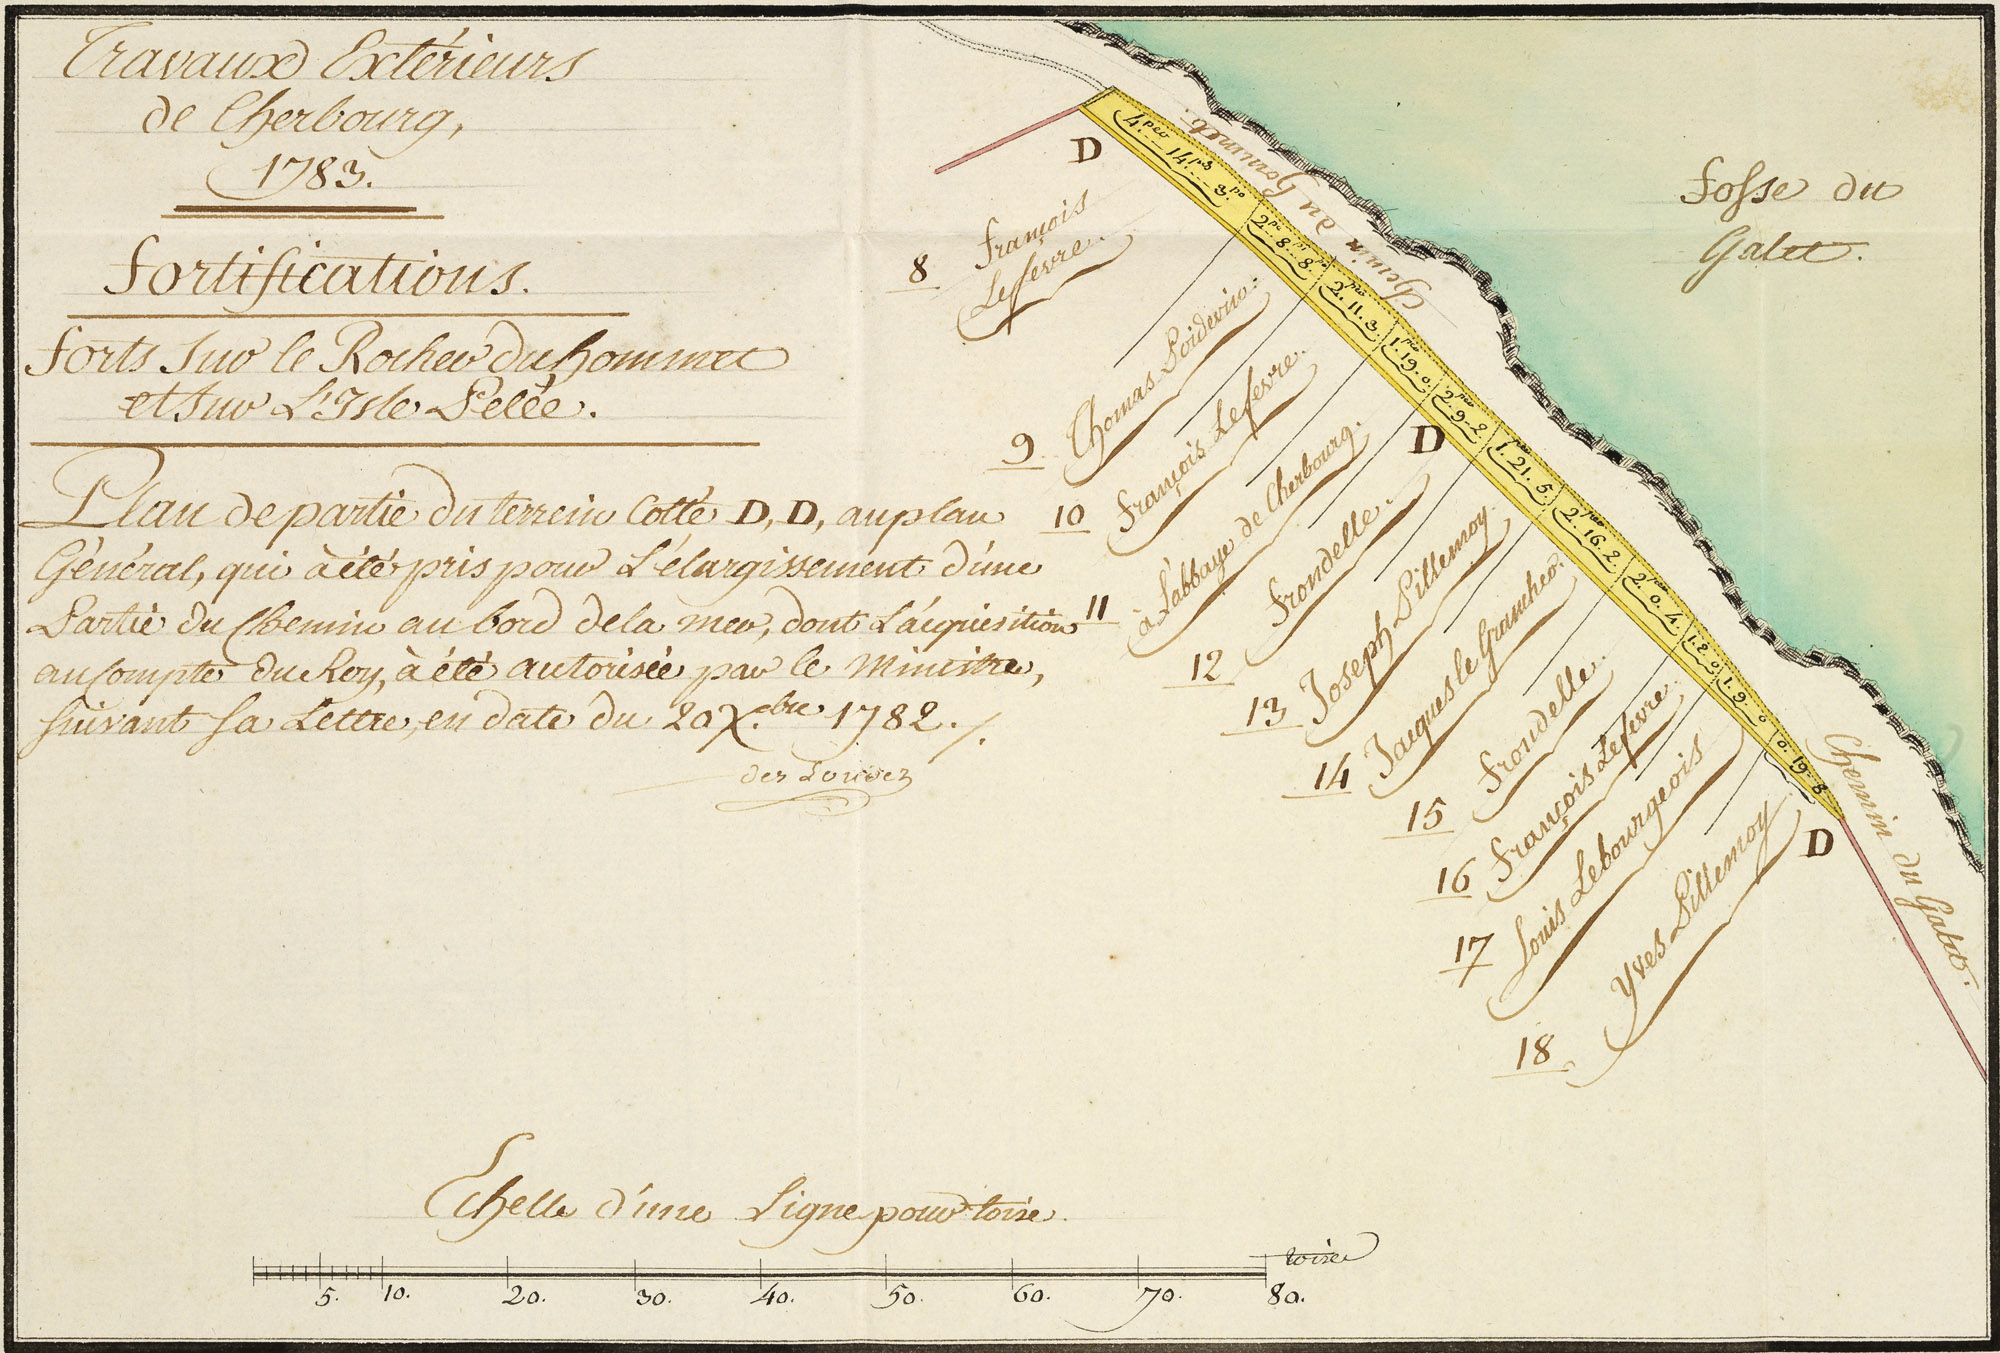 Travaux Extérieurs
de Cherbourg,
1783.
Fortifications.
Forts Sur le Rocher du hommet
et Sur L'Isle Pelée.
Plan de partie du terrein Cotté D, D, au plan
Général, qui à été pris pour L'élargissement d'une
Partie du Chemin au bord de la mer, dont L'acquisition
au Compte du Roy, à été autorisée par le Ministre,
suivant sa Lettre, en date du 20 X.bre 1782./.
Fosse du
Galet.
Chemin du hommet
D
4.per 14.pds 3.po
2.per 8.pi 8.po
2.per 11. 3.
1.per 19. 0.
2.per 9. 2
1.per 21. 5.
2.per 16. 2
2.per 0. 4.
1. 2. 0
1. 9. 0
0. 19. 8.
D
D
Chemin du Galet.
8 François
Lefevre.
9 Thomas Poidevin.
10 François Lefevre.
11 à L'abbaye de Cherbourg.
12 Frondelle.
13 Joseph Pillemoy.
14 Jacques le Grancher.
15 Frondelle.
16 François Lefevre.
17 Louis Lebourgeois
18 Yves Pillemoy
Echelle d'une Ligne pour toise.
toises
5. 10. 20. 30. 40. 50. 60. 70. 80.